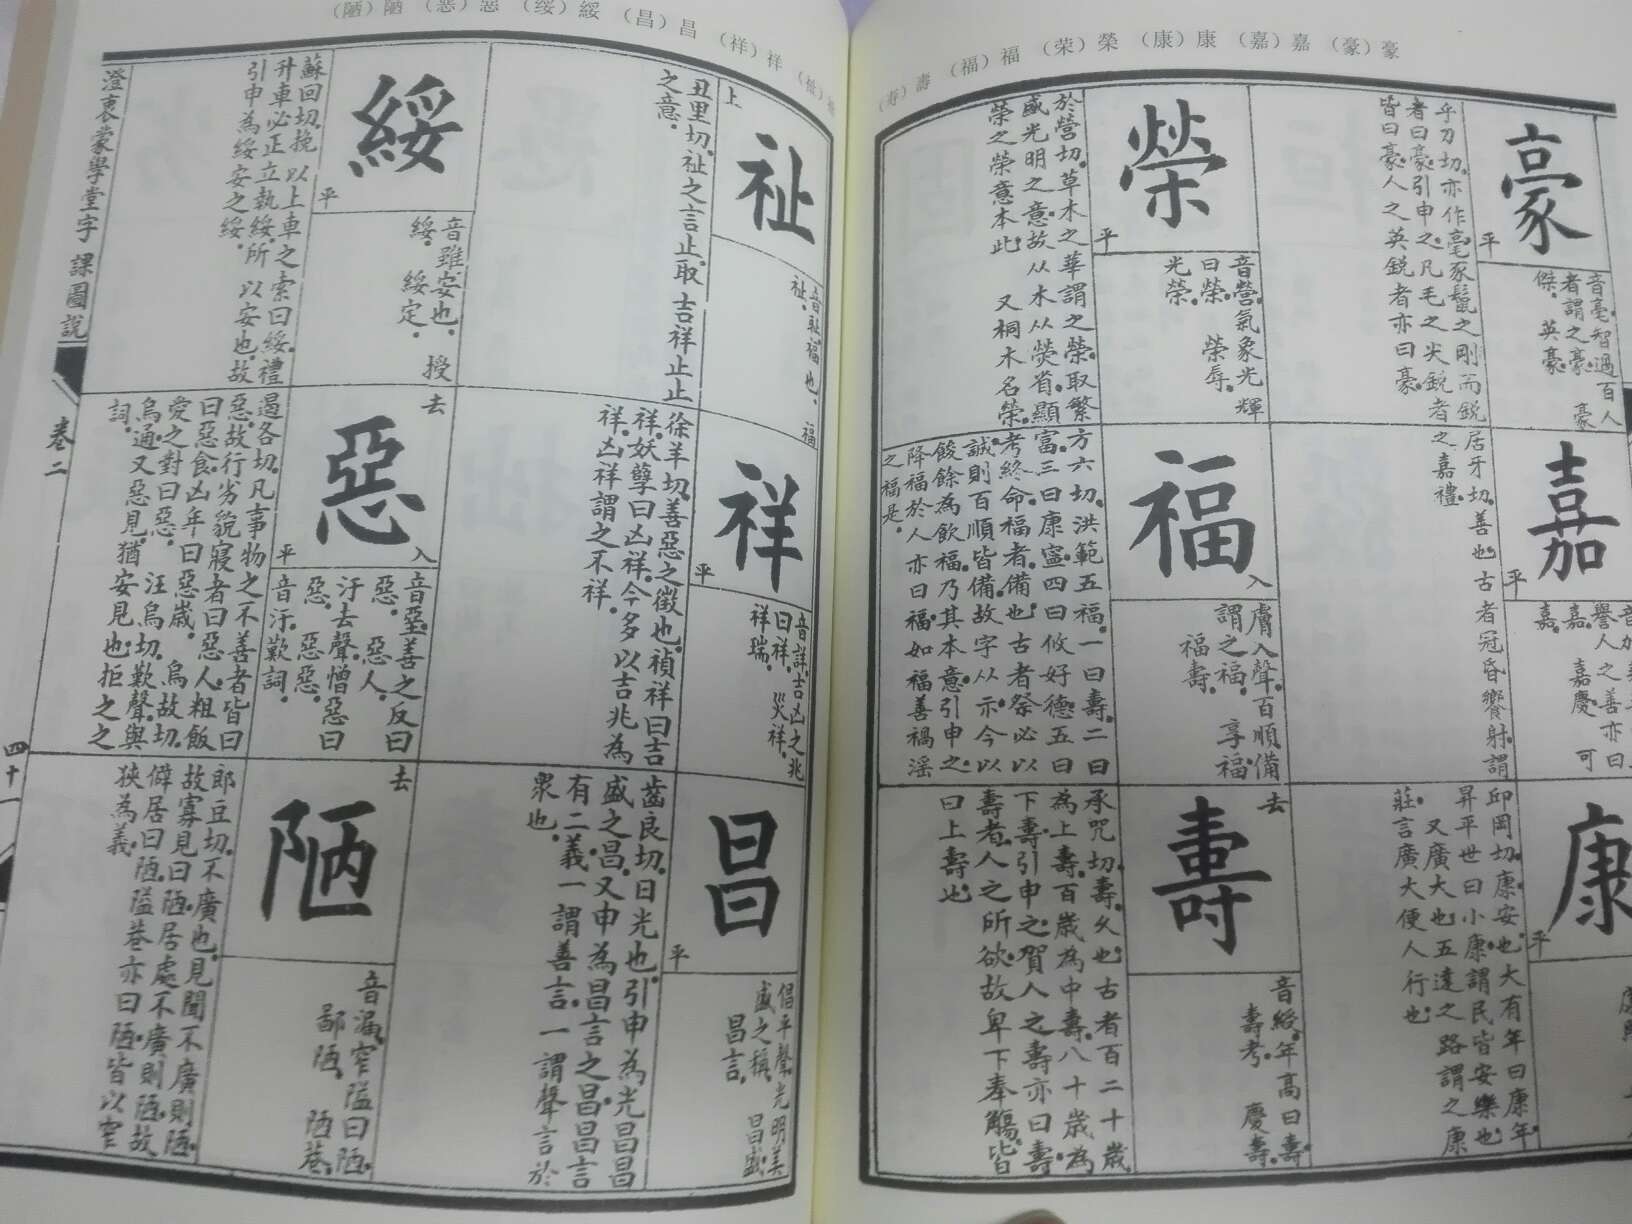 （陋）陋 （惡）惡 （绥）綏 （昌）昌 （祥）祥
（寿）壽 （福）福 （荣）榮 （康）康 （嘉）嘉 （豪）豪
豪
平
音毫。智過百人
者謂之豪。 豪
傑。 英豪。
乎刀切。亦作毫。豕鬣之剛而銳
者曰豪。引申之。凡毛之尖銳者
皆曰豪。人之英銳者亦曰豪。
嘉
平
譽人之善亦曰
嘉。 嘉慶。 可
嘉。
居牙切。善也。古者冠昏饗射。謂
之嘉禮。
康
平
邱岡切。康。安也。大有年曰康年。
昇平世曰小康。謂民皆安樂也。
又廣大也。五達之路謂之康
莊。言廣大便人行也。
榮
平
音營。氣象光輝
曰榮。 榮辱。
光榮。
於營切。草木之華謂之榮。取繁
盛光明之意。故从木从熒省。顯
榮之榮意本此。 又桐木名榮。
福
入
膚入聲。百順備
謂之福。 享福。
福壽。
方六切。洪範五福。一曰壽。二曰
富。三曰康寧。四曰攸好德。五曰
考終命。福者。備也。古者祭必以
誠。則百順皆備。故字从示。今以
餕餘為飲福。乃其本意。引申之。
降福於人亦曰福。如福善禍淫
之福是。
壽
去
音綬。年高曰壽。
壽考。 慶壽。
承咒切。壽。久也。古者百二十歲
為上壽。百歲為中壽。八十歲為
下壽。引申之。賀人之壽亦曰壽。
壽者。人之所欲。故卑下奉觴。皆
曰上壽也。
祉
上
音恥。福也。 福
祉。
丑里切。祉之言止。取吉祥止止
之意。
祥
平
音詳。吉凶之兆
曰祥。 災祥。
祥瑞。
徐羊切。善惡之徵也。禎祥曰吉
祥。妖孽曰凶祥。今多以吉兆為
祥。凶祥謂之不祥。
昌
平
倡平聲。光明美
盛之稱。 昌盛。
昌言。
齒良切。日光也。引申為光昌昌
盛之昌。又申為昌言之昌。昌言
有二義。一謂善言。一謂聲言於
眾也。
綏
平
音雖。安也。 授
綏。 綏定。
蘇回切。挽以上車之索曰綏。禮
升車必正立執綏。所以安也。故
引申為綏安之綏。
惡
去
入
平
音堊。善之反曰
惡。 惡人。
汙去聲。憎惡曰
惡。 惡惡。
音汙。歎詞。
遏各切。凡事物之不善者皆曰
惡。故行劣貌寢者曰惡人。粗飯
曰惡食。凶年曰惡歲。 烏故切。
愛之對曰惡。 汪烏切。歎聲。與
烏通。又惡見。猶安見也。拒之之
詞。
陋
去
音漏。窄隘曰陋。
鄙陋。 陋巷。
郎豆切。不廣也。見聞不廣則陋。
故寡見曰陋。居處不廣則陋。故
僻居曰陋。隘巷亦曰陋。皆以窄
狹為義。
澄衷蒙學堂字課圖說
卷二
四十